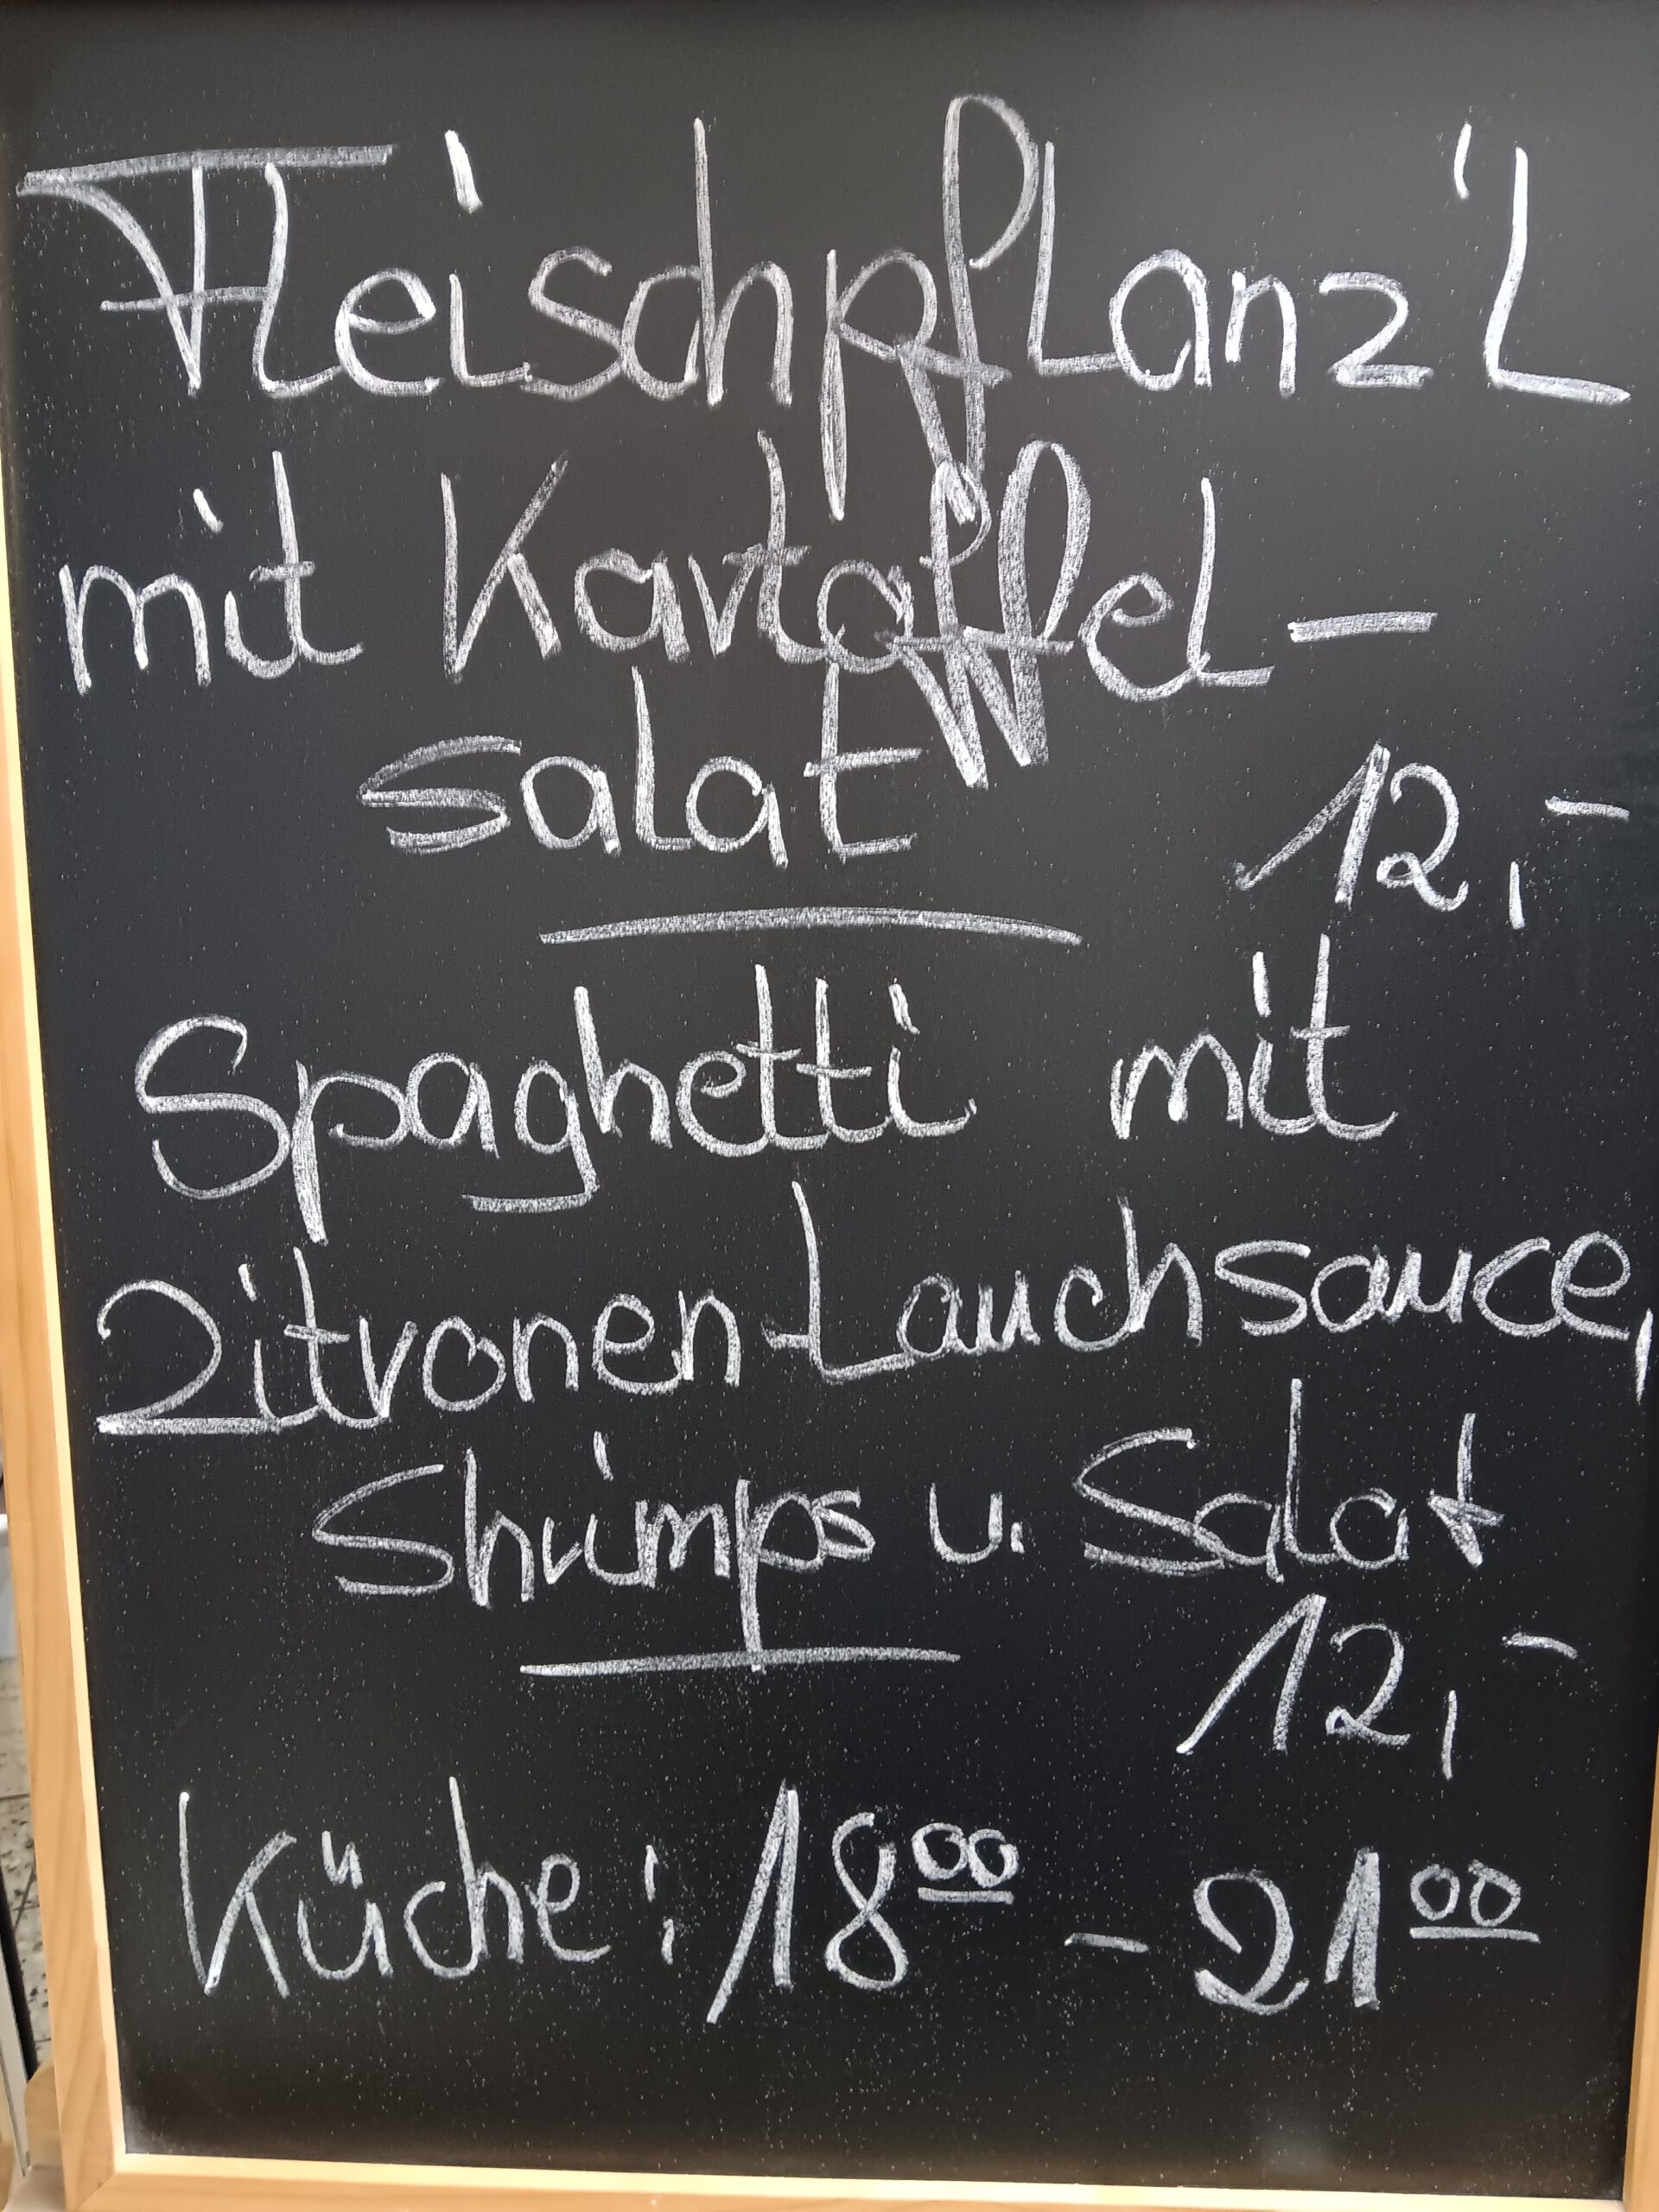 Fleischpflanz'l
mit Kartoffel-
salat
12,-
Spaghetti mit
Zitronen-Lauchsauce,
Shrimps u. Salat
12,-
Küche: 18⁰⁰ - 21⁰⁰